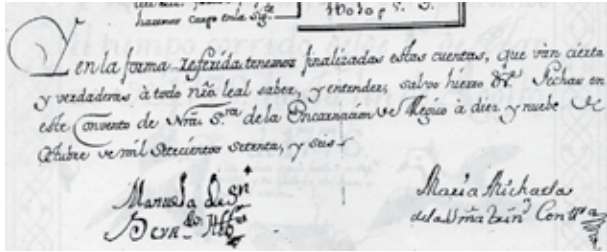 hacemos cargo en la sig.te
Y en la forma referida tenemos finalizadas estas cuentas, que ván cierta
y verdaderas à todo nřo leal saber, y entender, salvo hierro &.ª fechas en
este Convento de Nrâ. S.ra de la Encarnacion de Megico à diez y nuebe de
Octubre de mil setecientos setenta, y seis
Manuela de Sn
María Michaela
de la Sma Trin.d Cont.ra